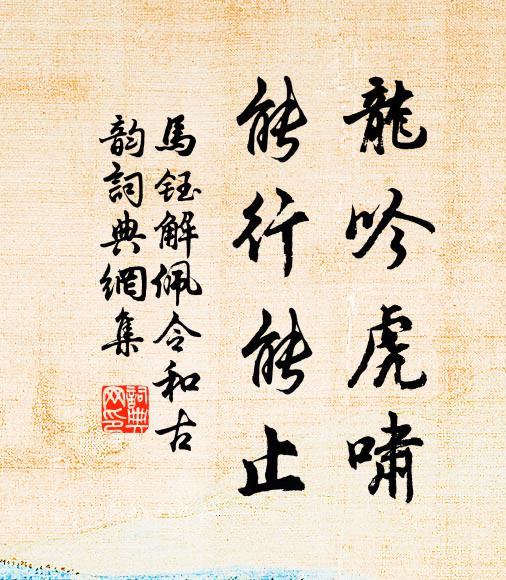 龍吟虎嘯
能行能止
馬鈺解佩令和古
韵詞典網集
詞典
网印